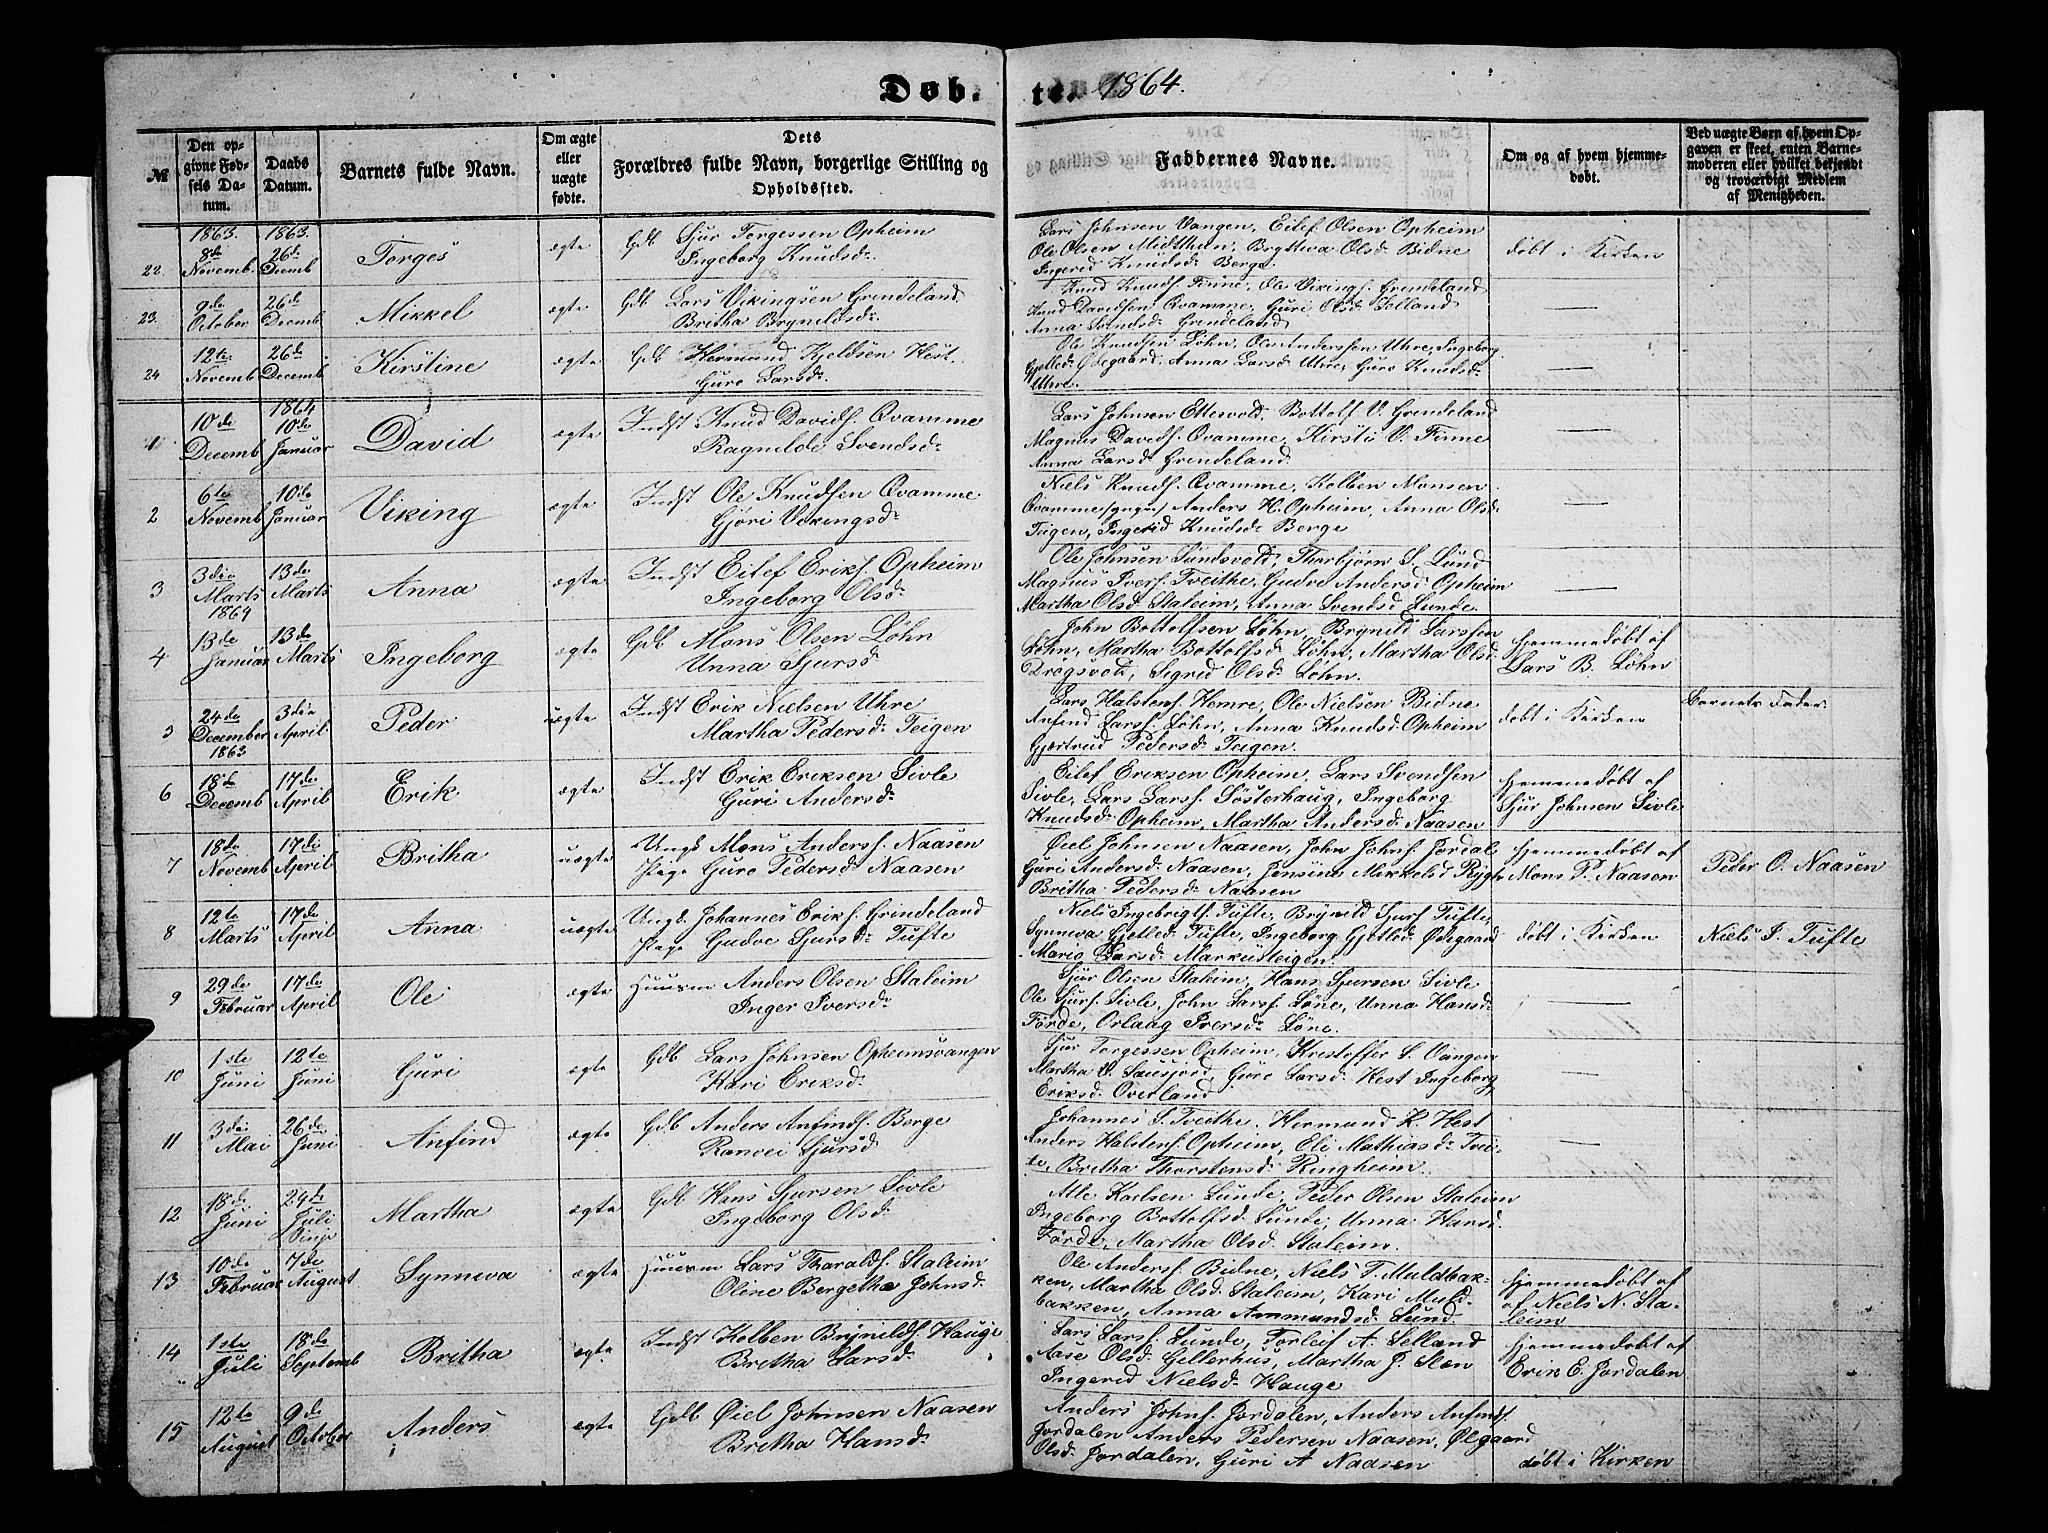 Døb. te. 1864.
№
Den opgivne Fødsels Datum.
Daabs Datum.
Barnets fulde Navn.
Om ægte eller uægte fødte.
Dets Forældres fulde Navn, borgerlige Stilling og Opholdssted.
Faddernes Navne.
Om og af hvem hjemmedøbt.
Ved uægte Børn af hvem Opgaven er skeet, enten Barnemoderen eller hvilket bekjendt og troværdigt Medlem af Menigheden.
1863. 1863.
22. 8de Novemb. 26de Decemb Torges ægte Gdb Sjur Torgessen Opheim
Ingeborg Knudsd.
Lars Johnsen Vangen, Eilef Olsen Opheim
Ole Olsen Midtthun, Brytteva Olsd. Bidne
Ingerid Knudsd. Berge.
døbt i Kirken
23. 9de October 26de Decemb Mikkel ægte Gdb Lars Vikingsen Grendeland
Britha Brynildsd.
Knud Knuds. Finne, Ole Vikings. Grendeland
Knud Davidsen Qvamme, Guri Olsd. Holland
Anna Svendsd. Grendeland
24 12te Novemb 26de Decemb Kirstine ægte Gdb Hermund Kjeldsen Hest.
Guro Larsd.
Ole Knudsen Løhn, Ole Anderssen Uhre, Ingeborg
Gjetled. Ødegaard. Anna Larsd. Uhre, Guro Knudsd.
Uhre.
1864
1 10de Decemb 10de Januar David ægte Indst Knud Davids. Qvamme
Ragnilde Svendsd.
Lars Johnsen Ettesvold, Bottolf V. Grendeland
Magnus Davids. Qvamme, Kirsti V. Finne
Anna Larsd. Grendeland.
2 6te Novemb 10de Januar Viking ægte Indst Ole Knudsen Qvamme
Gjøri Vikingsd.
Niels Knuds. Qvamme, Kolben Monsen
Qvamme (yngre) Anders H. Opheim, Anna Olsd.
Teigen, Ingerid Knudsd. Berge
3 3die Marts 1864 13de Marts Anna ægte Indst Eilef Eriks. Opheim
Ingeborg Olsd.
Ole Johnsen Sundsvold, Thorbjørn S. Lund
Magnus Ivers. Tveithe, Gudve Andersd. Opheim
Martha Olsd. Staleim, Anna Svendsd Lunde.
4 13de Januar 13de Marts Ingeborg ægte Gdb Mons Olsen Løhn
Unna Sjursd.
John Bottolfsen Løhn, Brynild Larssen
Løhn, Martha Bottolfsd. Løhn, Martha Olsd.
Drøgsvold, Sigrid Olsd. Løhn.
hjemmedøbt af
Lars B. Løhn
5 24de December 1863 3die April Peder uægte Indst Erik Nielsen Uhre
Martha Pedersd. Teigen
Lars Halstens. Hemre, Ole Nielsen Bidne
Anfind Larss. Løhn, Anna Knudsd. Opheim
Gjertrud Pedersd. Teigen.
døbt i Kirken
Barnets Fader
6 18de Decemb 17de April Erik ægte Indst Erik Eriksen Sivle
Guri Andersd.
Eilef Eriksen Opheim, Lars Svendsen
Sivle, Lars Larss. Søsterhaug, Ingeborg
Knudsd. Opheim, Martha Andersd. Naasen
hjemmedøbt af
Sjur Johnsen Sivle
7 18de Novemb 17de April Britha uægte Ungk Mons Anders. Naasen
Pige Guro Pedersd. Naasen
Øiel Johnsen Naasen, John Johns. Jordal
Guri Andersd. Naasen, Jensine Mikkelsd Rygh
Britha Pedersd. Naasen
hjemmedøbt af
Mons P. Naasen
Peder O. Naasen
8 12te Marts 17de April Anna uægte Ungk. Johannes Eriks. Grindeland
Pige Gudve Sjursd. Tufte
Niels Ingebrigts. Tufte, Brynild Sjurs. Tufte,
Synneva Gjetled. Tufte, Ingeborg Gjetled. Ødegaard
Maria Larsd. Markusteigen.
døbt i Kirken
Niels I. Tufte
9 29de Februar 17de April Ole ægte Huusm Anders Olsen Staleim
Inger Iversd.
Sjur Olsen Staleim, Hans Sjursen Sivle
Ole Sjurs. Sivle, John Larss. Løne, Unna Hansd.
Førde, Orlaag Iversd. Løne.
10 1ste Juni 12te Juni Guri ægte Gdb Lars Johnsen Opheimsvangen
Kari Eriksd.
Sjur Torgessen Opheim, Kristoffer S. Vangen
Martha V. Sausjord, Guro Larsd. Hest Ingeborg
Eriksd. Overland
11 3die Mai 26de Juni Anfind ægte Gdb Anders Anfinds. Berge
Ranvei Sjursd
Johannes S. Tveithe, Hermund K. Hest
Anders Halstens. Opheim, Eli Mathiasd. Tvei-
te, Britha Thorstensd. Ringheim.
12 18de Juni 24de Juli Vinje Martha ægte Gdb Hans Sjursen Sivle
Ingeborg Olsd.
Atle Karlsen Lunde, Peder Olsen Staleim
Ingeborg Bottolfsd. Lunde, Unna Hansd.
Førde, Martha Olsd. Staleim.
13 10de Februar 7de August Synneva ægte Huusm Lars Tharalds. Staleim
Oline Bergetha Johnsd.
Ole Anders. Bidne, Niels T. Muldbak-
ken, Martha Olsd. Staleim, Kari Muld-
bakken, Anna Ammundsd. Lund
hjemmedøbt af
af Niels N. Sta-
leim
14 1ste Juli 18de Septemb Britha ægte Indst Kolben Brynilds. Hauge
Britha Larsd.
Lars Larss. Lunde, Torleif A. Selland
Aase Olsd. Gellerhus, Martha J. Sleen
Ingerid Nielsd. Hauge
hjemmedøbt af
Erik E. Jordalen
15 12te August 9de October Anders ægte Gdb Øiel Johnsen Naasen
Britha Hansd.
Anders Johns. Jordalen, Anders Anfinds.
Jordalen Anders Pedersen Naasen, Ølgaard
Olsd. Jordalen, Guri A Naasen
døbt i Kirken